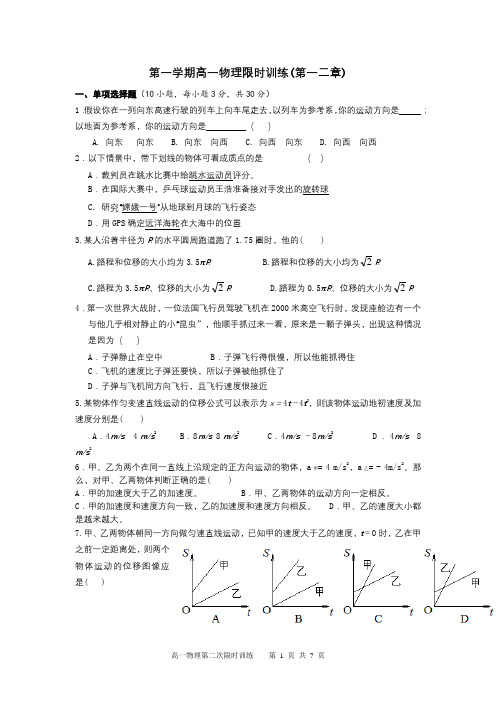 第一学期高一物理限时训练(第一二章)
一、单项选择题（10小题，每小题3分，共30分）
1.假设你在一列向东高速行驶的列车上向车尾走去,以列车为参考系,你的运动方向是_____；
以地面为参考系，你的运动方向是_________ (    )
A. 向东  向东  B. 向东  向西  C. 向西  向东  D. 向西  向西
2．以下情景中，带下划线的物体可看成质点的是            (   )
A．裁判员在跳水比赛中给跳水运动员评分。
B．在国际大赛中，乒乓球运动员王浩准备接对手发出的旋转球
C. 研究“嫦娥一号”从地球到月球的飞行姿态
D．用GPS确定远洋海轮在大海中的位置
3.某人沿着半径为 R 的水平圆周跑道跑了1.75圈时，他的(    )
A.路程和位移的大小均为3.5πR          B.路程和位移的大小均为√2 R
C.路程为3.5πR、位移的大小为√2 R      D.路程为0.5πR、位移的大小为√2 R
4．第一次世界大战时，一位法国飞行员驾驶飞机在2000米高空飞行时，发现座舱边有一个
与他几乎相对静止的小“昆虫”，他顺手抓过来一看，原来是一颗子弹头，出现这种情况
是因为 (    )
A．子弹静止在空中        B．子弹飞行得很慢，所以他能抓得住
C．飞机的速度比子弹还要快，所以子弹被他抓住了
D．子弹与飞机同方向飞行，且飞行速度很接近
5.某物体作匀变速直线运动的位移公式可以表示为x＝4t－4t²，则该物体运动地初速度及加
速度分别是(    )
A．4m/s  4 m/s²    B．8m/s 8 m/s²    C．4m/s －8m/s²    D．4m/s 8
m/s²
6．甲、乙为两个在同一直线上沿规定的正方向运动的物体，a甲= 4 m/s²，a乙= －4m/s²。那
么，对甲、乙两物体判断正确的是(    )
A．甲的加速度大于乙的加速度。        B．甲、乙两物体的运动方向一定相反。
C．甲的加速度和速度方向一致，乙的加速度和速度方向相反。  D．甲、乙的速度大小都
是越来越大。
7.甲、乙两物体朝同一方向做匀速直线运动，已知甲的速度大于乙的速度，t＝0时，乙在甲
之前一定距离处，则两个
物体运动的位移图像应
是(    )
S 甲 乙 O t A
S 乙 甲 O t B
S 甲 乙 O t C
S 乙 甲 O t D
高一物理第二次限时训练    第 1 页 共 7 页